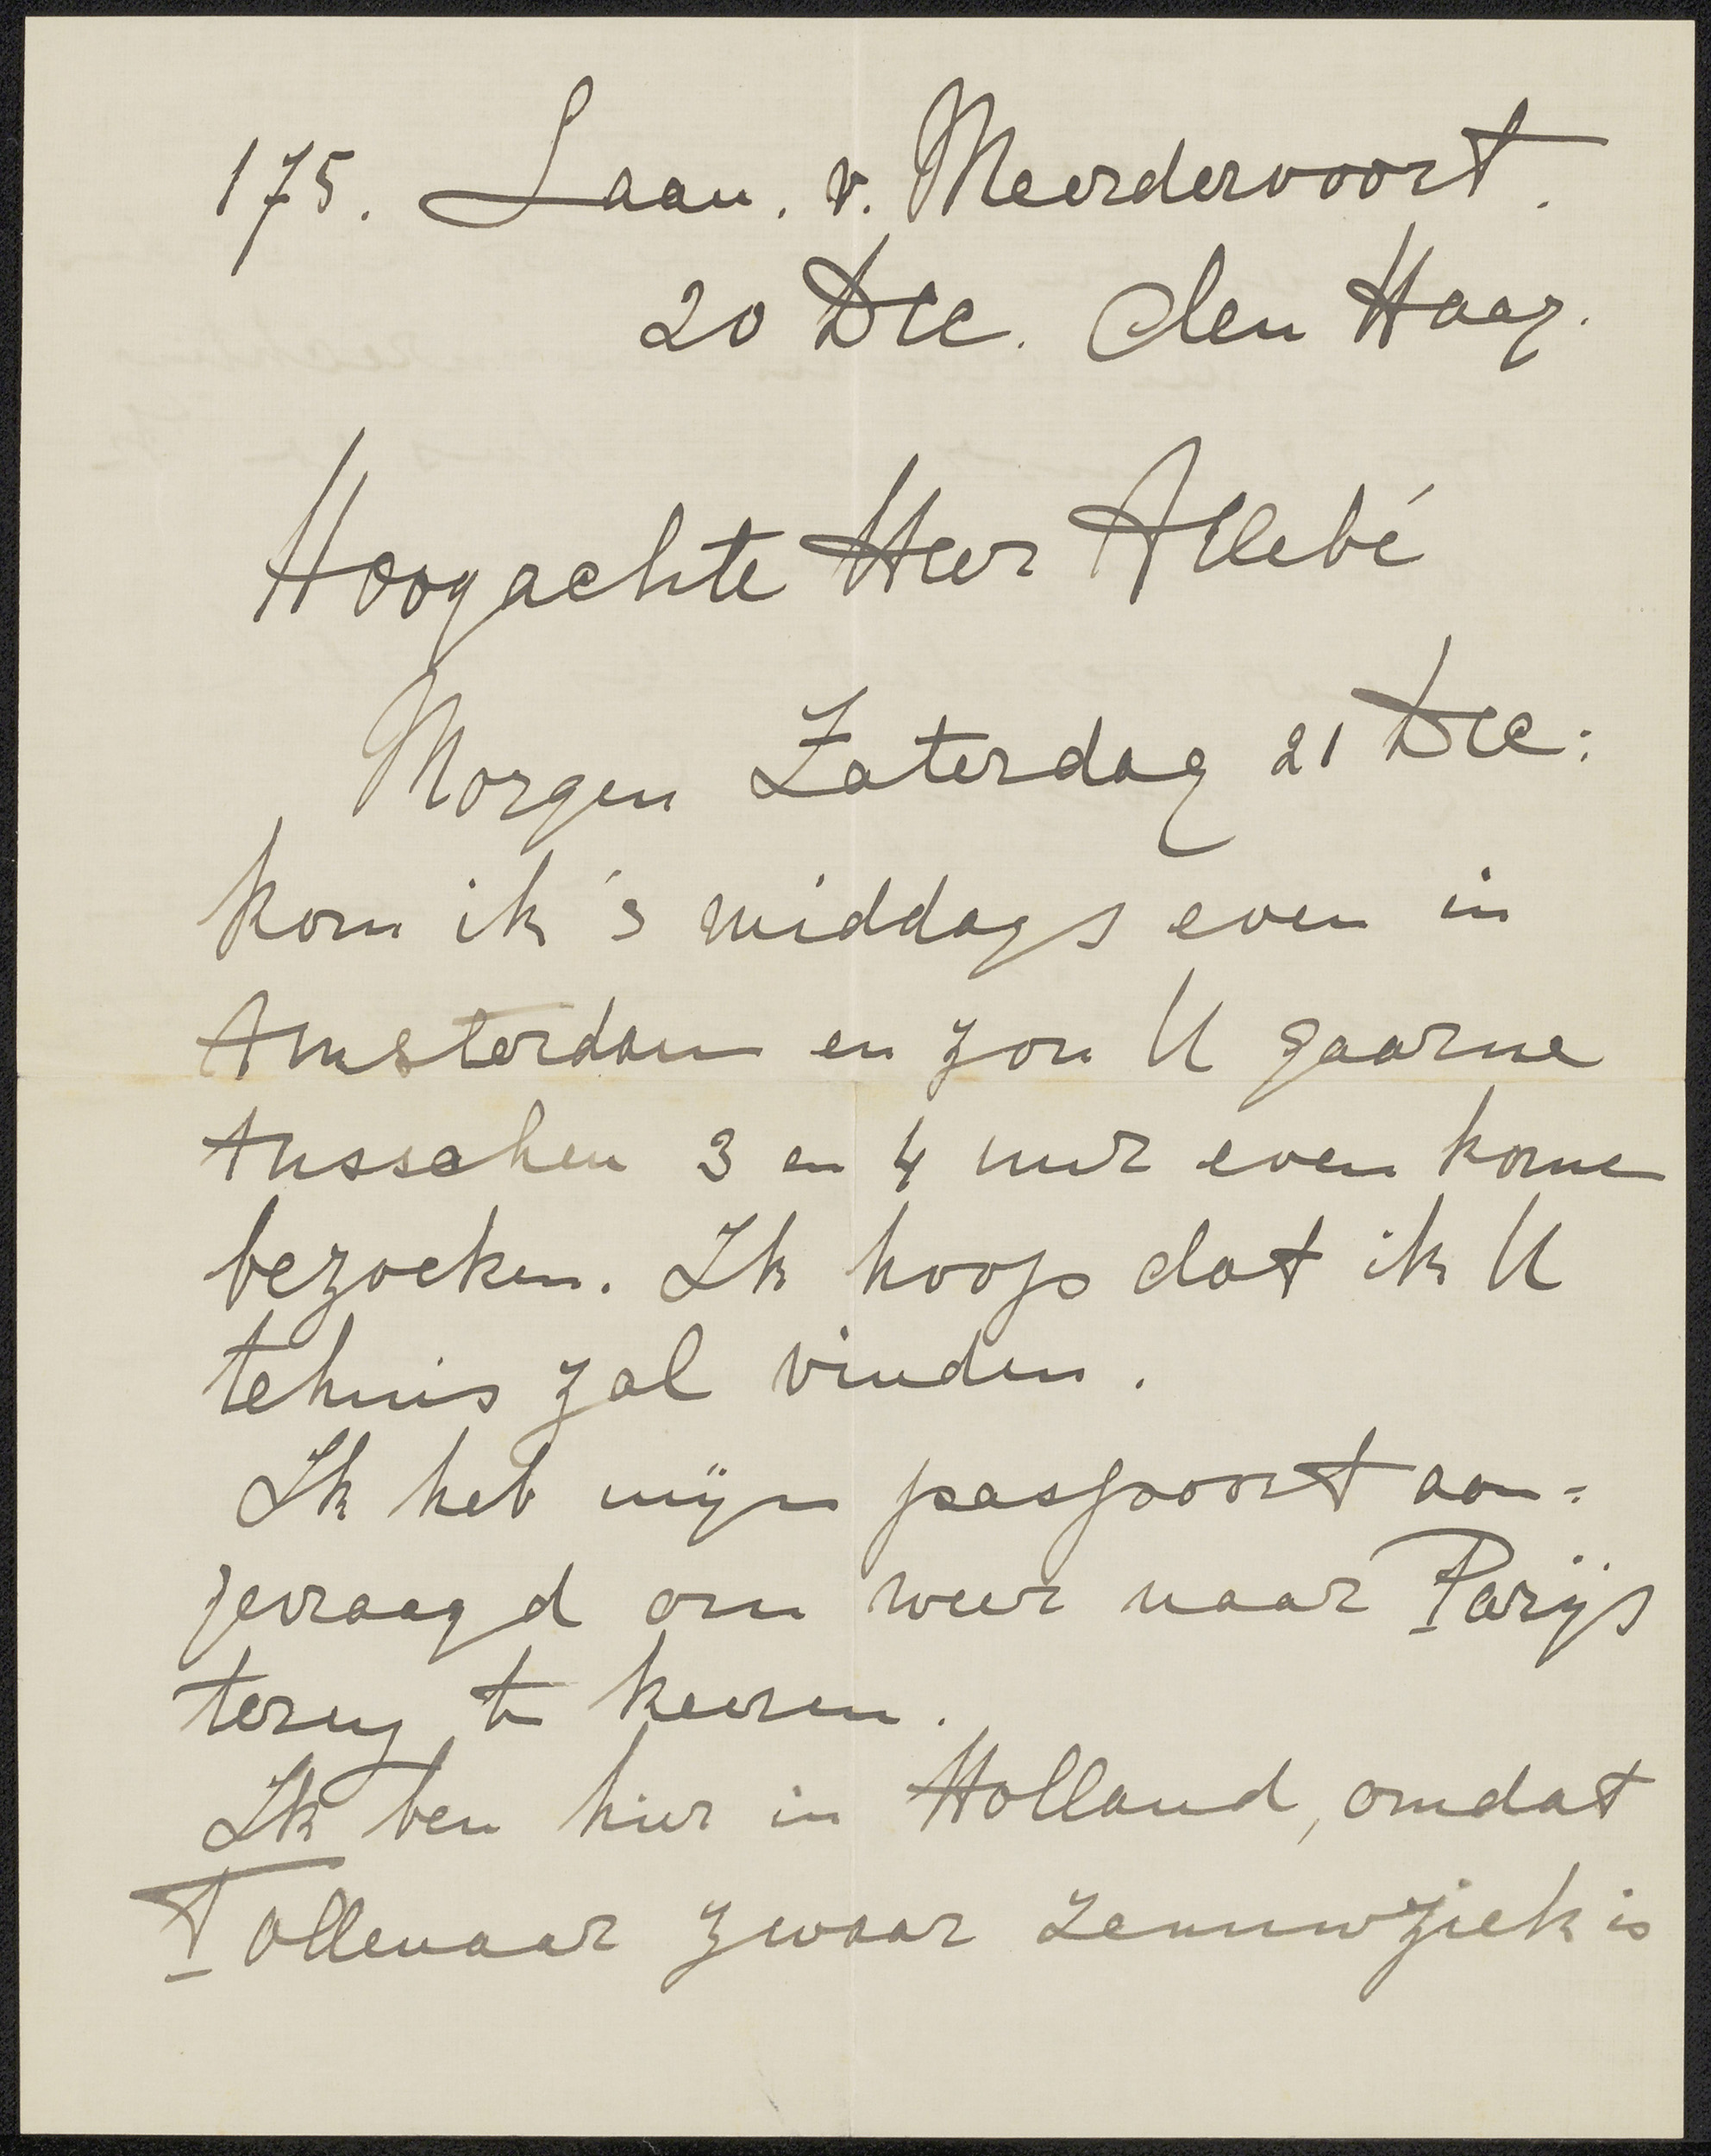 175. Laan. v. Meerdervoort.
20 Dec. den Haag.
Hoogachte Heer Allebé
Morgen Zaterdag 21 Dec:
kom ik 's middags even in
Amsterdam en zou U gaarne
tusschen 3 en 4 uur even kome
bezoeken. Ik hoop dat ik U
tehuis zal vinden.
Ik heb mijn paspoort aan=
gevraagd om weer naar Parijs
terug te keeren.
Ik ben hier in Holland, omdat
Tollenaar zwaar zenuwziek is